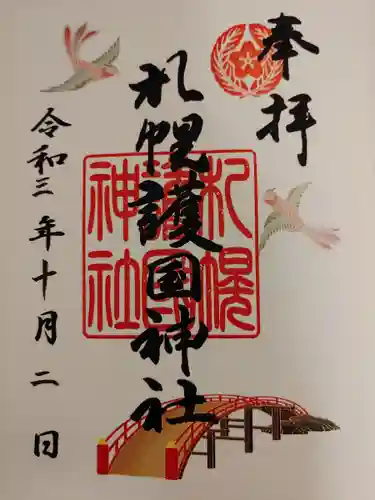 奉拝
札幌護国神社
札幌
護国
神社
令和三年十月二日